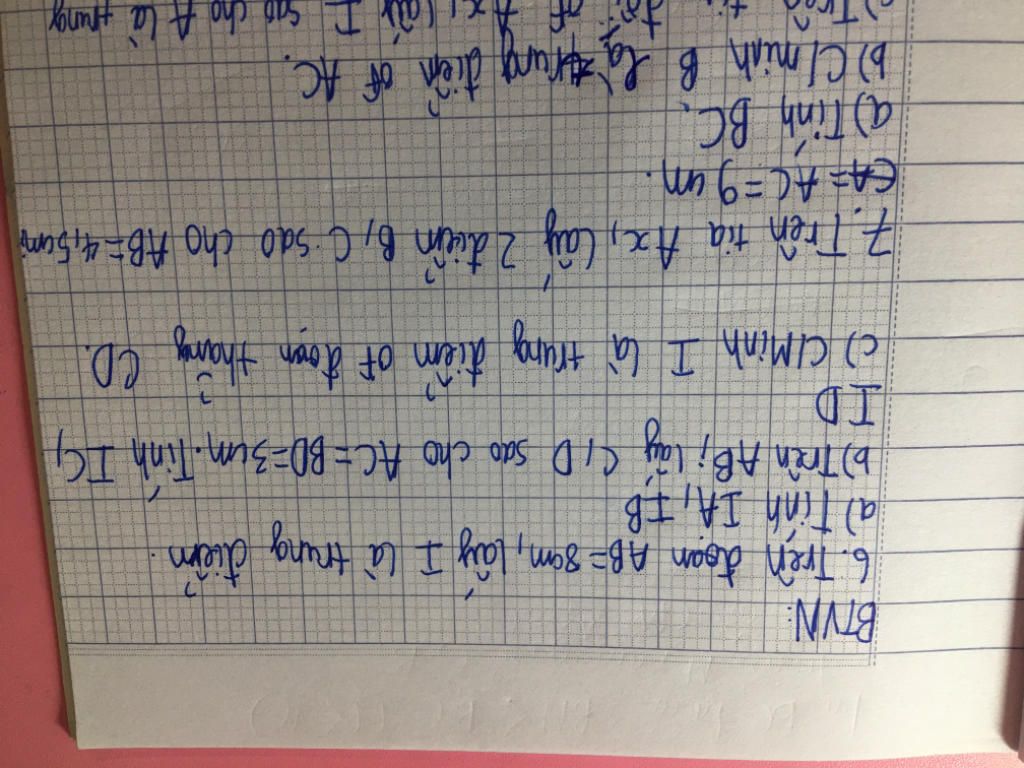 BTVN:
6. Trên đoạn AB=8cm, lấy I là trung điểm.
a) Tính IA, IB
b) Trên AB, lấy C, D sao cho AC=BD=3cm. Tính IC,
ID
c) C/Minh I là trung điểm of đoạn thẳng CD.
7. Trên tia Ax, lấy 2 điểm B, C sao cho AB=4,5cm,
AC=9cm.
a) Tính BC.
b) C/minh B là trung điểm of AC.
c) Trên tia đối of Ax, lấy I sao cho A là trung